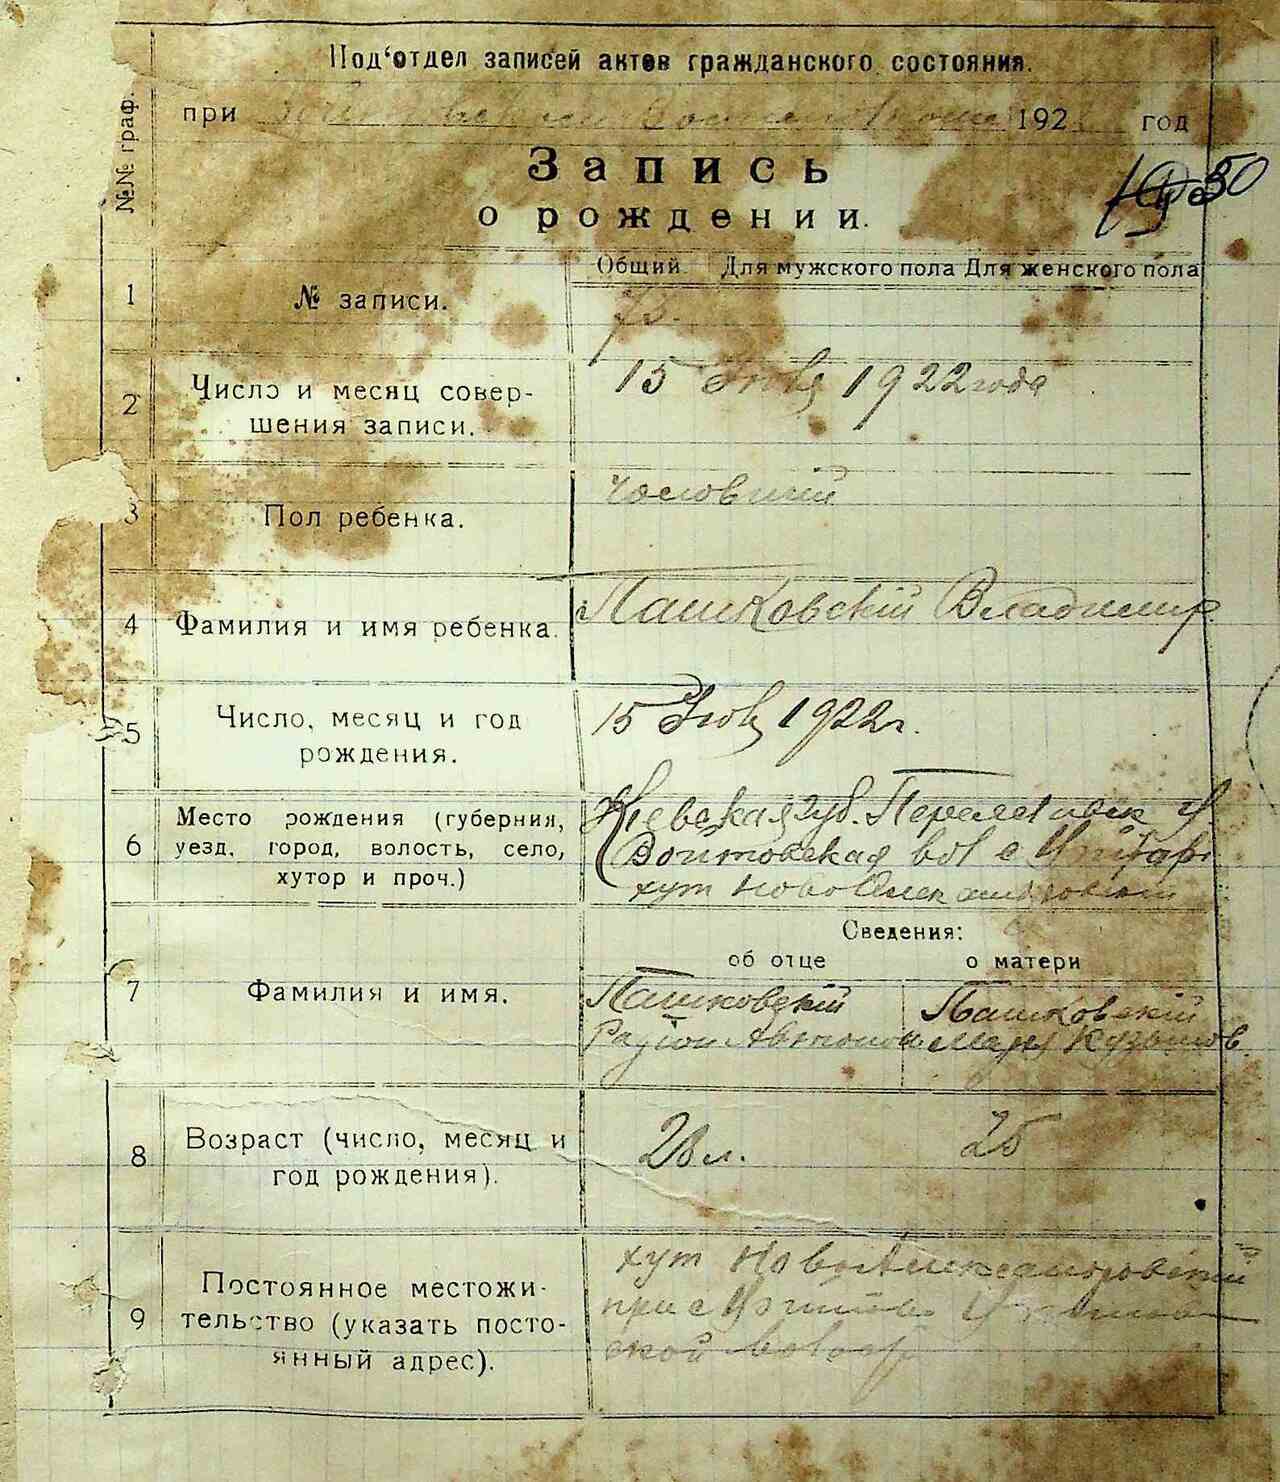 Под‘отдел записей актов гражданского состояния.
при 192 год
Запись
о рождении.
50
№№ граф.
Общий. Для мужского пола Для женского пола
1 № записи.
2 Число и месяц совер-
шения записи.
15 Янв 1922 года
3 Пол ребенка.
чоловичий
4 Фамилия и имя ребенка.
Пашковскій Владимир.
5 Число, месяц и год
рождения.
15 Янв 1922 г.
6 Место рождения (губерния,
уезд, город, волость, село,
хутор и проч.)
Киевская губ.
Войтовская вол с
хут НовоАлександровскій
Сведения:
об отце о матери
7 Фамилия и имя.
Пашковскій Пашковскій
8 Возраст (число, месяц и
год рождения).
28 л. 25
9 Постоянное местожи-
тельство (указать посто-
янный адрес).
хут НовоАлександровский
при с